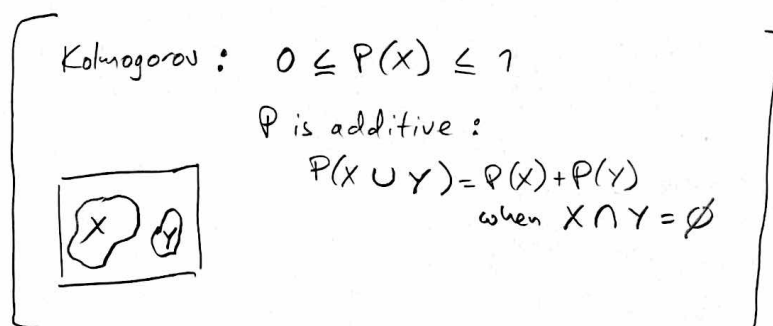 Kolmogorov : 0 ≤ P(X) ≤ 1
P is additive :
P(X ∪ Y) = P(X) + P(Y)
when X ∩ Y = ∅
X Y